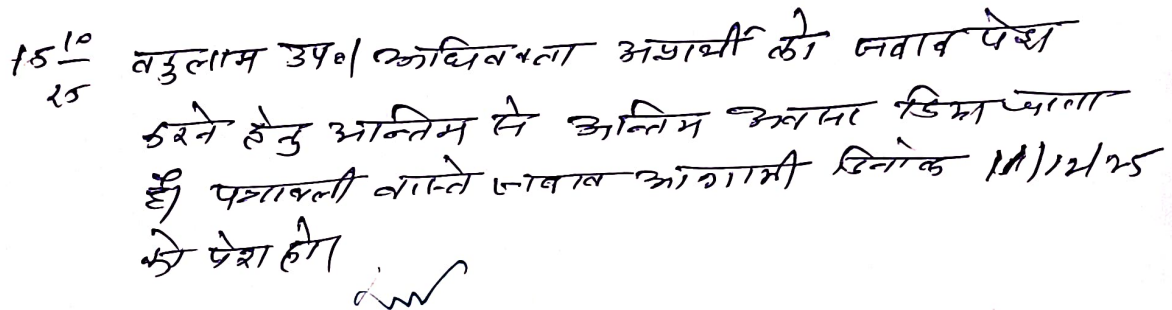 15/10/25 वकुलाय उप०। अधिवक्ता अप्रार्थी को जवाब पेश
करने हेतु अन्तिम से अन्तिम अवसर दिया जाता
है। पत्रावली वास्ते जवाब आगामी दिनांक /12/25
को पेश हो।